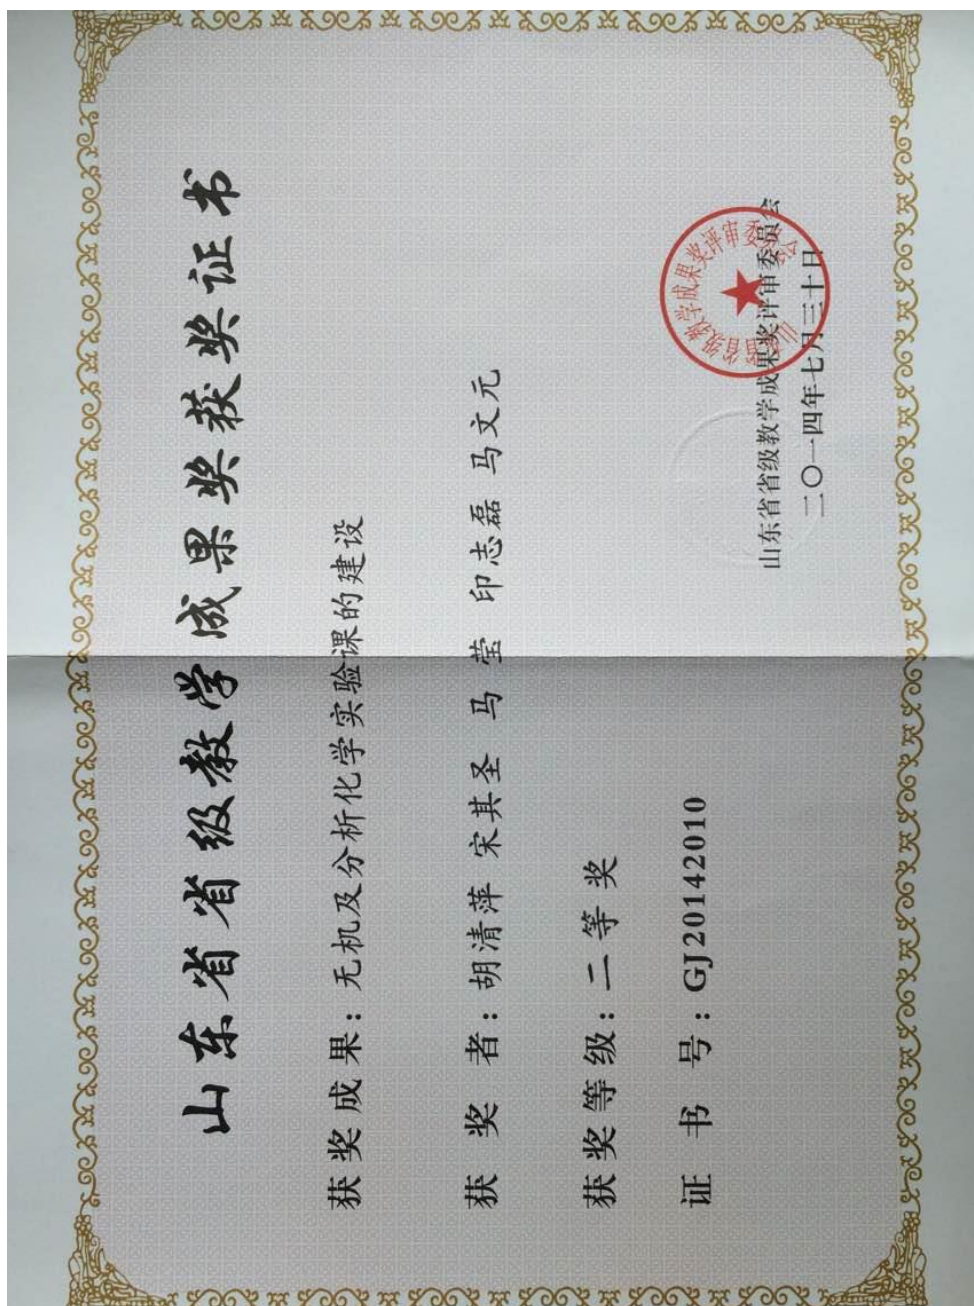 山东省省级教学成果奖获奖证书
获奖成果：无机及分析化学实验课的建设
获 奖 者：胡清萍 宋其圣 马 莹 印志磊 马文元
获奖等级：二等奖
证 书 号：GJ20142010
山东省省级教学成果奖评审委员会
二〇一四年七月三十日
山东省省级教学成果奖评审委员会